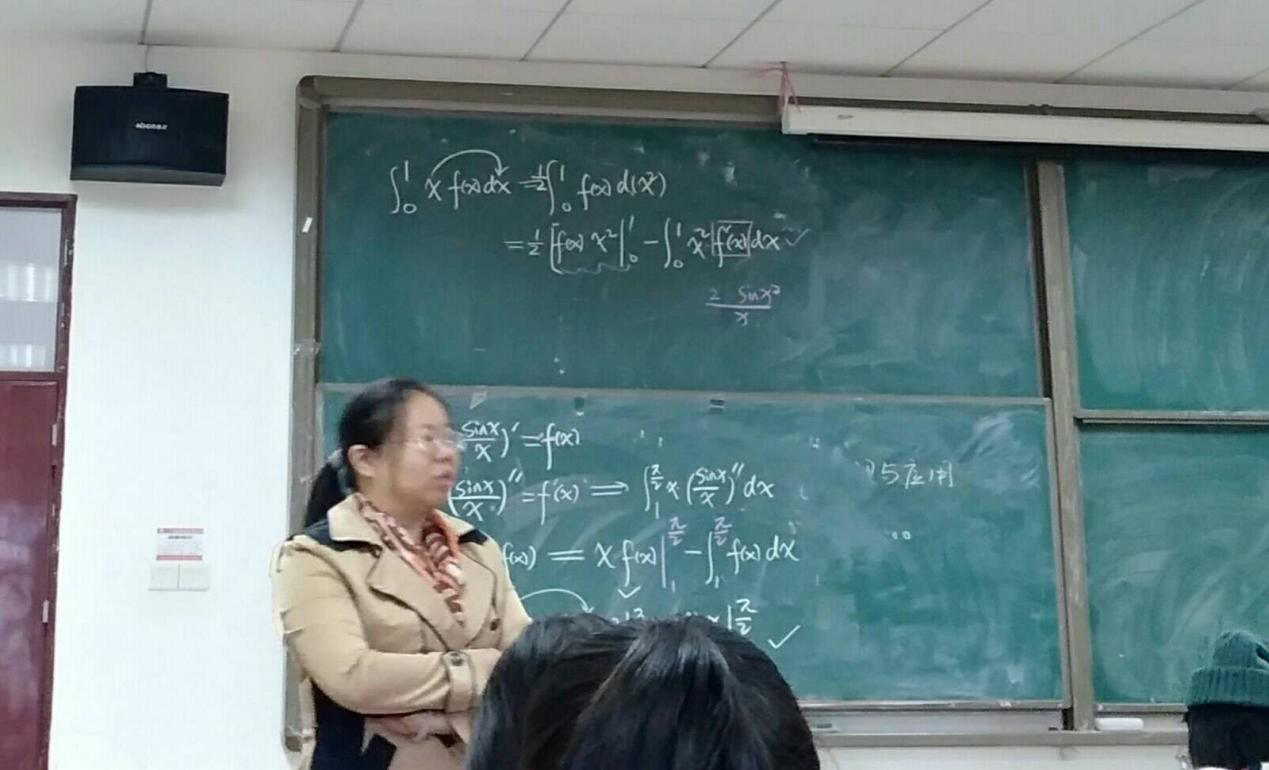 ∫₀¹ x f(x)dx = ½∫₀¹ f(x) d(x²)
= ½ [f(x) x²|₀¹ − ∫₀¹ x² f'(x) dx ✓
2 sinx²
x
(sinx/x)' = f(x)
(sinx/x)'' = f'(x) ⟹ ∫₁^(π/2) x (sinx/x)'' dx
f(x) = x f(x)|₁^(π/2) − ∫₁^(π/2) f(x) dx
x|^(π/2) ✓
与应用